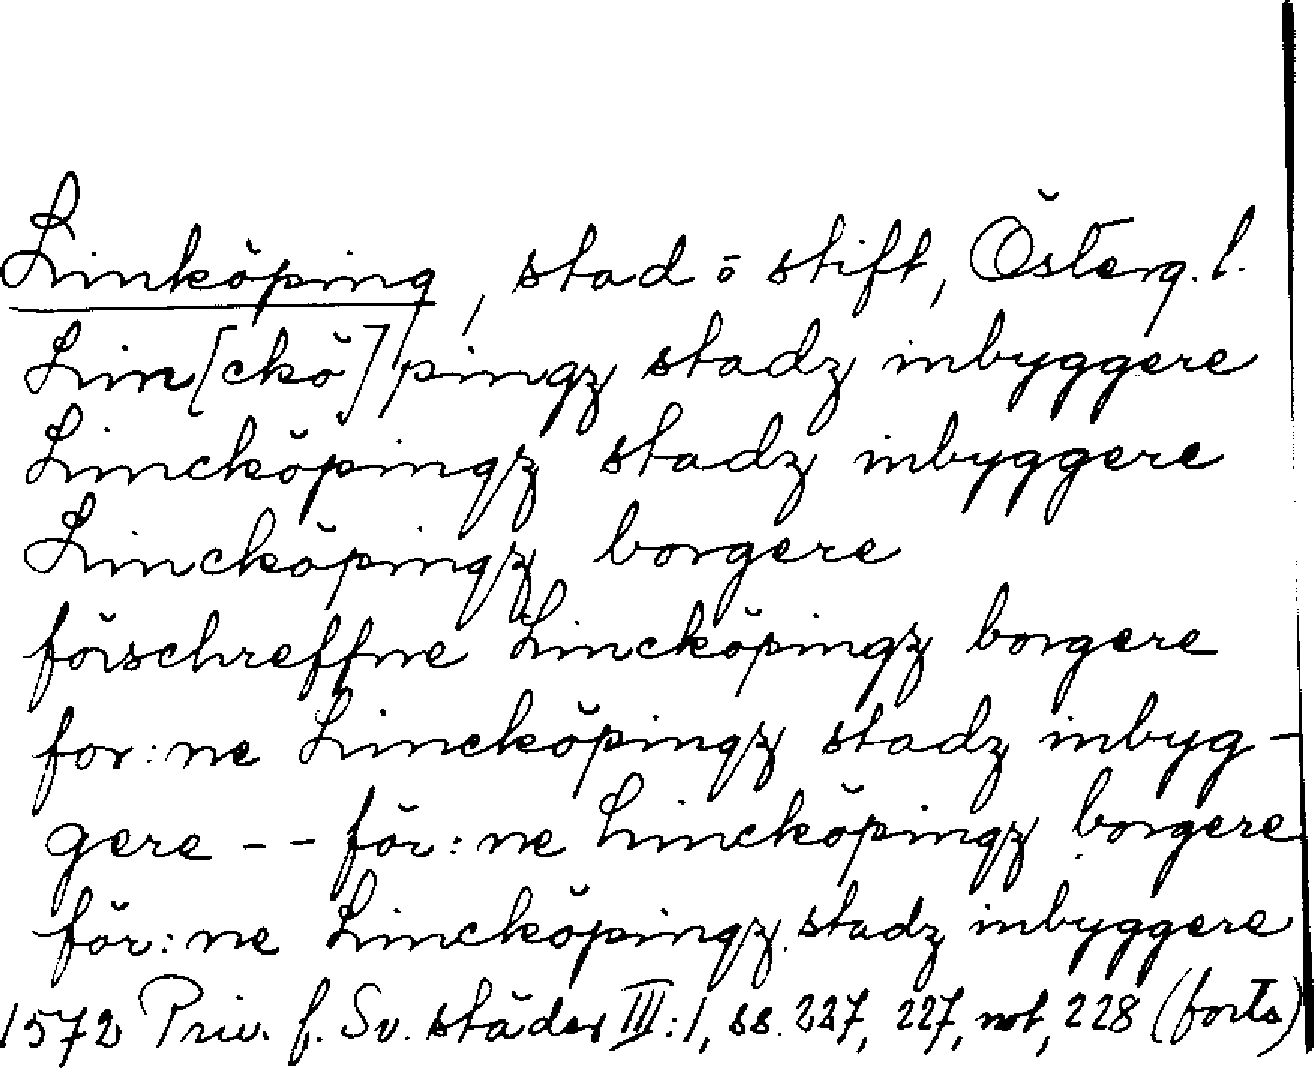 Linköping, stad o stift, Österg. l.
Lin[ckö]pingz stadz inbyggere
Lincköpingz stadz inbyggere
Lincköpingz borgere
förschreffne Lincköpingz borgere
för:ne Lincköpingz stadz inbyg-
gere -- för:ne Lincköpingz borgere
för:ne Lincköpingz stadz inbyggere
1572 Priv. f. Sv. städer III:1, ss. 227, 227, not, 228 (forts)